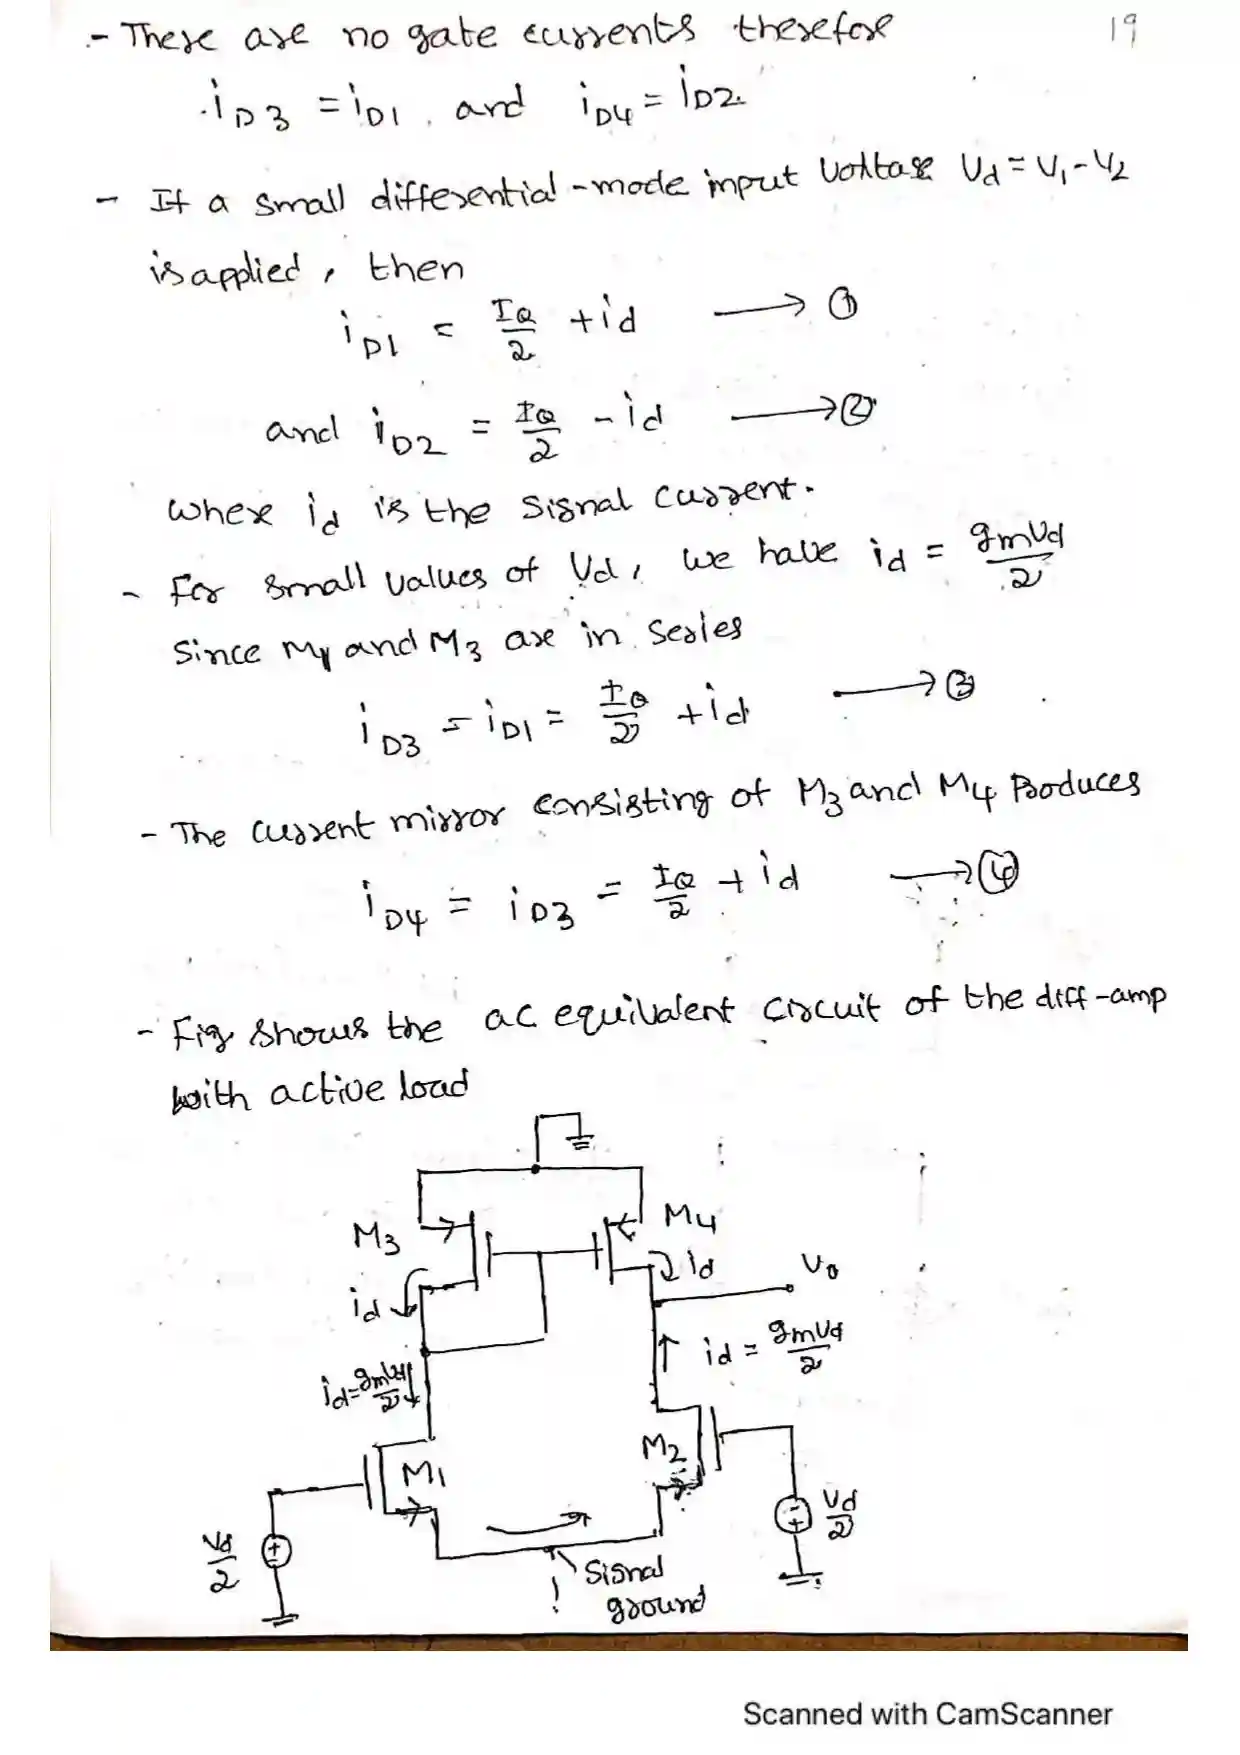 - There are no gate currents therefore
19
iD3 = iD1, and iD4 = iD2.
- If a small differential-mode input voltage Vd = V1 - V2
is applied, then
iD1 = IQ/2 + id → ①
and iD2 = IQ/2 - id → ②
where id is the signal current.
- For small values of Vd, we have id = gmVd/2
Since M1 and M3 are in series
iD3 = iD1 = IQ/2 + id → ③
- The current mirror consisting of M3 and M4 Produces
iD4 = iD3 = IQ/2 + id → ④
- Fig shows the ac equivalent circuit of the diff-amp
with active load
M3
M4
id
id
Vo
id = gmVd/2
id = gmVd/2
M1
M2
Vd/2
Vd/2
Signal
ground
Scanned with CamScanner